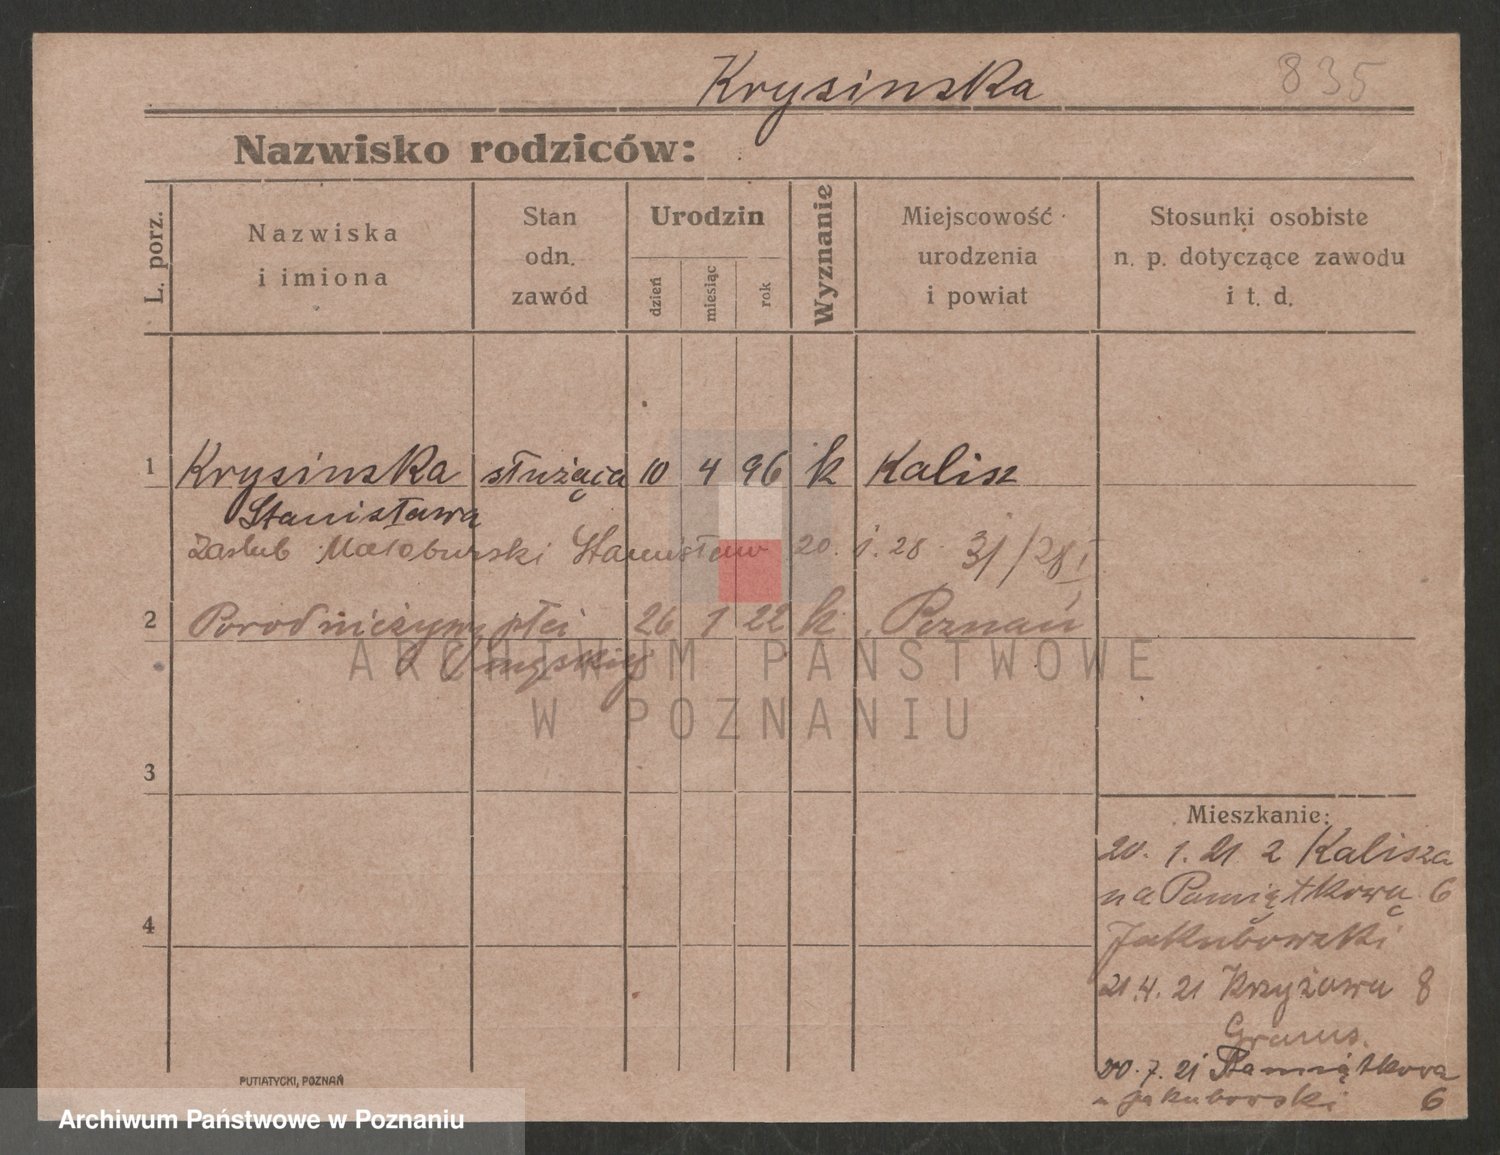 Krysinska
835
Nazwisko rodziców:
L. porz.
Nazwiska
i imiona
Stan
odn.
zawód
Urodzin
dzień
miesiąc
rok
Wyznanie
Miejscowość
urodzenia
i powiat
Stosunki osobiste
n. p. dotyczące zawodu
i t. d.
1 Krysinska służąca 10 4 96 k Kalisz
Stanisława
Zaślub Stanisław 20. 1. 28 31/28 I
2 Poród nieżywy płci 26 1 22 k Poznań
ARCHIWUM PAŃSTWOWE
W POZNANIU
3
4
Mieszkanie:
20. 1. 21 z Kalisza
na Pamiątkową 6
Jakubowski
21.4. 21 Krzyżowa 8
20. 7. 21 Pamiątkowa
u Jakuborski 6
PUTIATYCKI, POZNAŃ
Archiwum Państwowe w Poznaniu